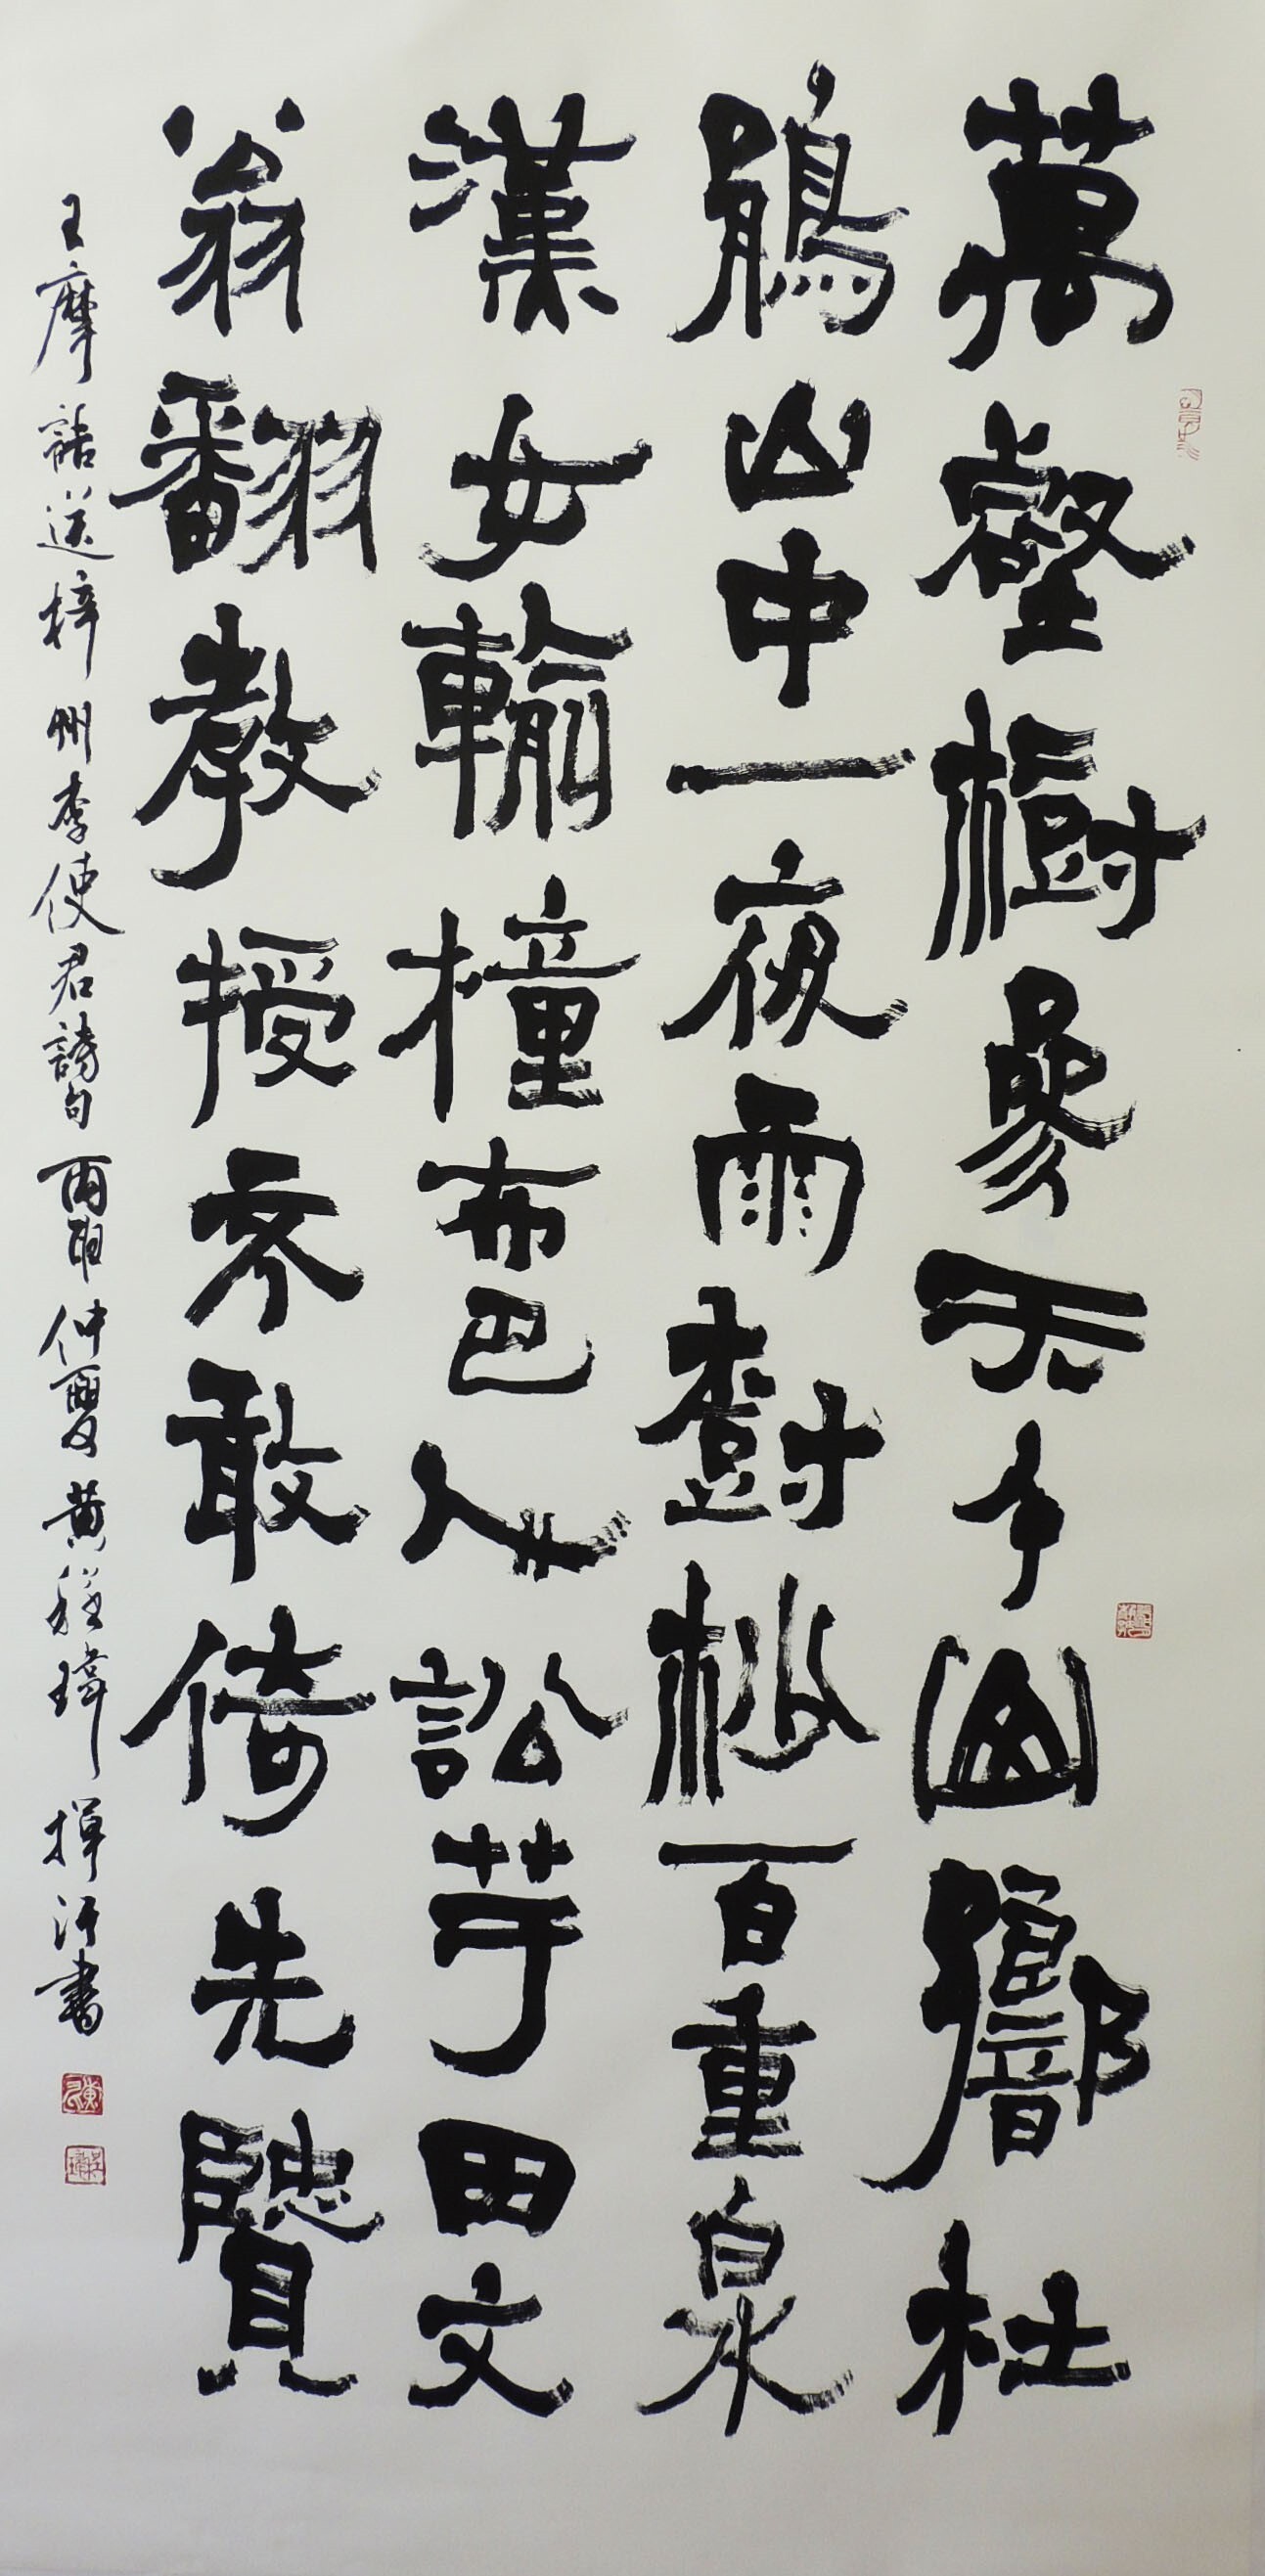 萬壑樹參天千山響杜
鵑山中一夜雨樹杪百重泉
漢女輸橦布巴人訟芋田文
翁翻教授不敢倚先賢
王摩詰送梓州李使君詩句 丙申仲夏黃程瑋揮汗書